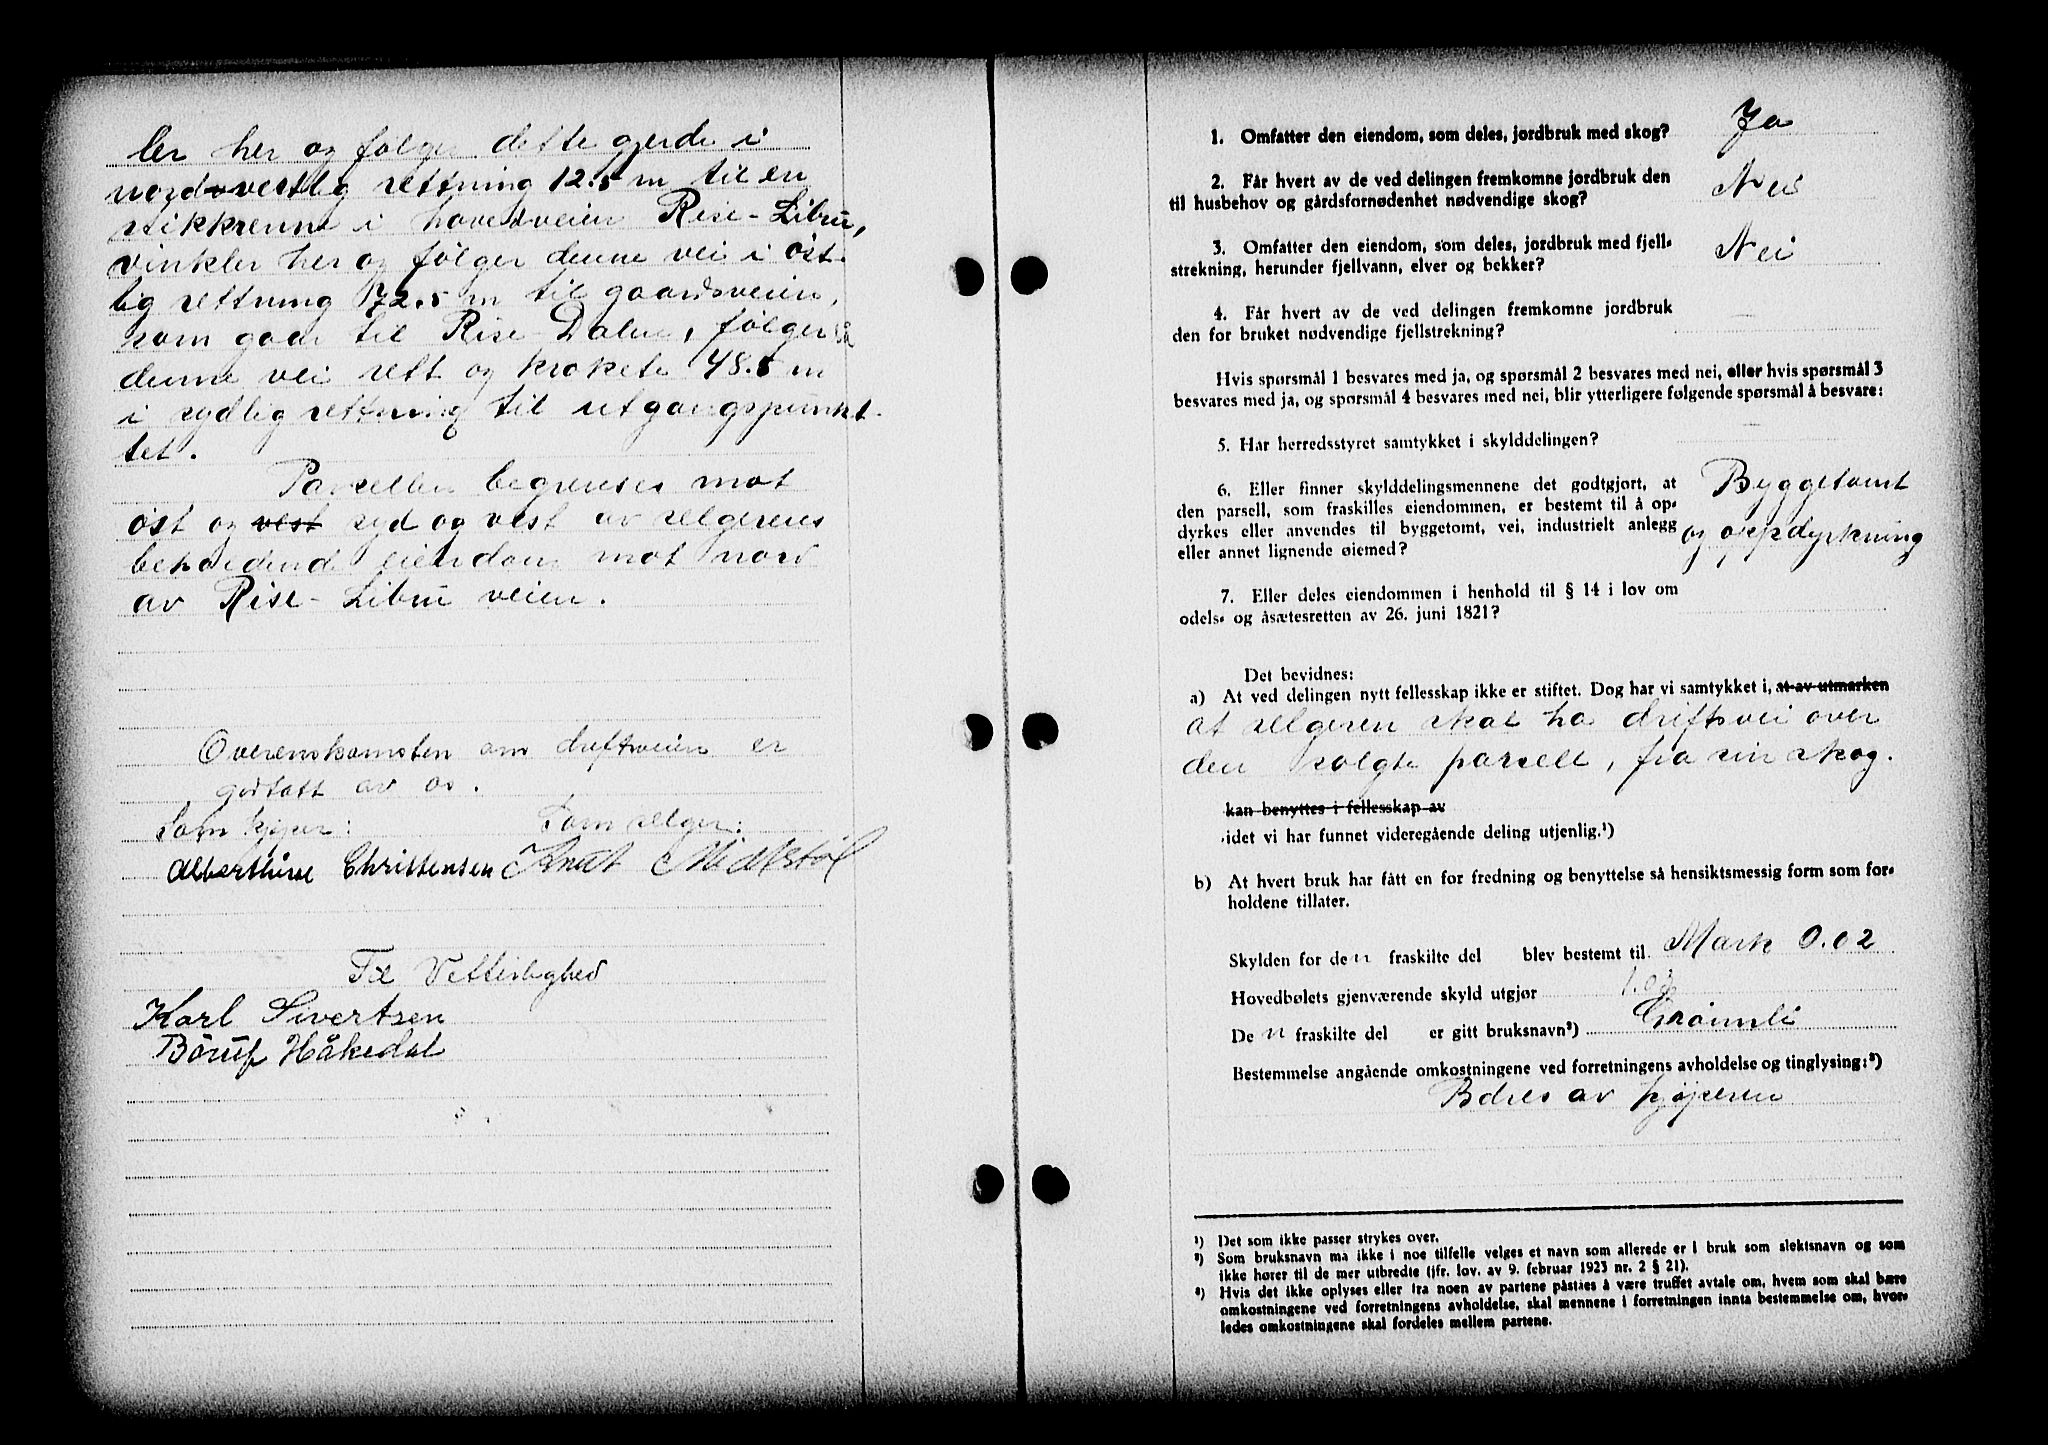 ler her og følger dette gjerde i
nordvestlig rettning 12.5 m til en
stikkrenne i hovedveien Rise-Libru,
vinkler her og følger denne vei i øst-
lig rettning 72.5 m til gaardsveien,
som gaar til Rise-Dalen, følger så
denne vei rett og krokete 48.5 m
i sydlig rettning til utgangspunkt-
tet.
Parcellen begrenses mot
øst og vest syd og vest av selgerens
beholdende eiendom mot nord
av Rise-Libru veien.
Overenskomsten om driftsveien er
godtatt av os.
Som kjøper: Som selger:
Alberthine Christensen Knut Midtstøl
Til Vitterlighed
Karl Sivertsen
Børuf Håkedal
1. Omfatter den eiendom, som deles, jordbruk med skog? Ja
2. Får hvert av de ved delingen fremkomne jordbruk den
til husbehov og gårdsfornødenhet nødvendige skog? Nei
3. Omfatter den eiendom, som deles, jordbruk med fjell-
strekning, herunder fjellvann, elver og bekker? Nei
4. Får hvert av de ved delingen fremkomne jordbruk
den for bruket nødvendige fjellstrekning? —
Hvis spørsmål 1 besvares med ja, og spørsmål 2 besvares med nei, eller hvis spørsmål 3
besvares med ja, og spørsmål 4 besvares med nei, blir ytterligere følgende spørsmål å besvare:
5. Har herredsstyret samtykket i skylddelingen? —
6. Eller finner skylddelingsmennene det godtgjort, at
den parsell, som fraskilles eiendommen, er bestemt til å op-
dyrkes eller anvendes til byggetomt, vei, industrielt anlegg
eller annet lignende øiemed?
Byggetomt
og oppdyrkning
7. Eller deles eiendommen i henhold til § 14 i lov om
odels- og åsætesretten av 26. juni 1821?
Det bevidnes:
a) At ved delingen nytt fellesskap ikke er stiftet. Dog har vi samtykket i, at av utmarken
at selgeren skal ha driftsvei over
den solgte parsell, fra sin skog.
kan benyttes i fellesskap av
idet vi har funnet videregående deling utjenlig.¹)
b) At hvert bruk har fått en for fredning og benyttelse så hensiktsmessig form som for-
holdene tillater.
Skylden for den fraskilte del blev bestemt til Mark 0.02
Hovedbølets gjenværende skyld utgjør
Den fraskilte del er gitt bruksnavn²) Grømli
Bestemmelse angående omkostningene ved forretningens avholdelse og tinglysing:³)
Bæres av kjøperen
¹) Det som ikke passer strykes over.
²) Som bruksnavn må ikke i noe tilfelle velges et navn som allerede er i bruk som slektsnavn og som
ikke hører til de mer utbredte (jfr. lov. av 9. februar 1923 nr. 2 § 21).
³) Hvis det ikke oplyses eller fra noen av partene påståes å være truffet avtale om, hvem som skal bære
omkostningene ved forretningens avholdelse, skal mennene i forretningen innta bestemmelse om, hvor-
ledes omkostningene skal fordeles mellem partene.